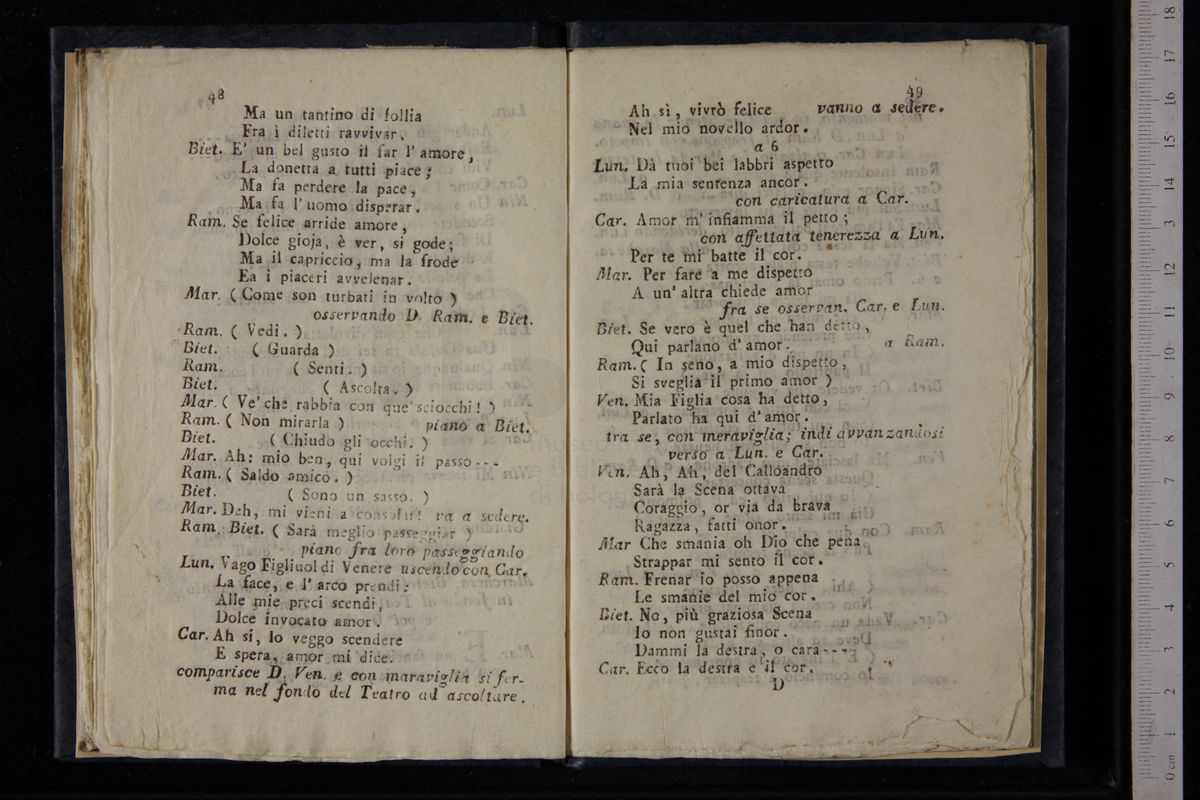 48
Ma un tantino di follia
Fra i diletti ravvivar.
Biet. E' un bel gusto il far l' amore,
La donetta a tutti piace;
Ma fa perdere la pace,
Ma fa l' uomo disperar.
Ram. Se felice arride amore,
Dolce gioja, è ver, si gode;
Ma il capriccio, ma la frode
Ea i piaceri avvelenar.
Mar. (Come son turbati in volto)
osservando D. Ram. e Biet.
Ram. ( Vedi. )
Biet. ( Guarda )
Ram. ( Senti. )
Biet. ( Ascolta. )
Mar. ( Ve' che rabbia con que' sciocchi! )
Ram. ( Non mirarla ) piano a Biet.
Biet. ( Chiudo gli occhi. )
Mar. Ah: mio ben, qui volgi il passo---
Ram. ( Saldo amico. )
Biet. ( Sono un sasso. )
Mar. Deh, mi vieni a consolar! va a sedere.
Ram. Biet. ( Sarà meglio passeggiar )
piano fra loro passeggiando
Lun. Vago Figliuol di Venere uscendo con Car.
La face, e l' arco prendi:
Alle mie preci scendi,
Dolce invocato amor.
Car. Ah si, lo veggo scendere
E spera, amor mi dice.
comparisce D. Ven. e con maraviglia si fer-
ma nel fondo del Teatro ad ascoltare.
49
Ah sì, vivrò felice vanno a sedere.
Nel mio novello ardor.
a 6
Lun. Dà tuoi bei labbri aspetto
La mia sentenza ancor.
con caricatura a Car.
Car. Amor m' infiamma il petto;
con affettata tenerezza a Lun.
Per te mi batte il cor.
Mar. Per fare a me dispetto
A un' altra chiede amor
fra se osservan. Car. e Lun.
Biet. Se vero è quel che han detto,
Qui parlano d' amor. a Ram.
Ram. ( In seno, a mio dispetto,
Si sveglia il primo amor )
Ven. Mia Figlia cosa ha detto,
Parlato ha qui d' amor.
tra se, con meraviglia; indi avvanzandosi
verso a Lun. e Car.
Ven. Ah, Ah, del Calloandro
Sarà la Scena ottava
Coraggio, or via da brava
Ragazza, fatti onor.
Mar Che smania oh Dio che pena
Strappar mi sento il cor.
Ram. Frenar io posso appena
Le smanie del mio cor.
Biet. No, più graziosa Scena
Io non gustai finor.
Dammi la destra, o cara---
Car. Ecco la destra e il cor.
D